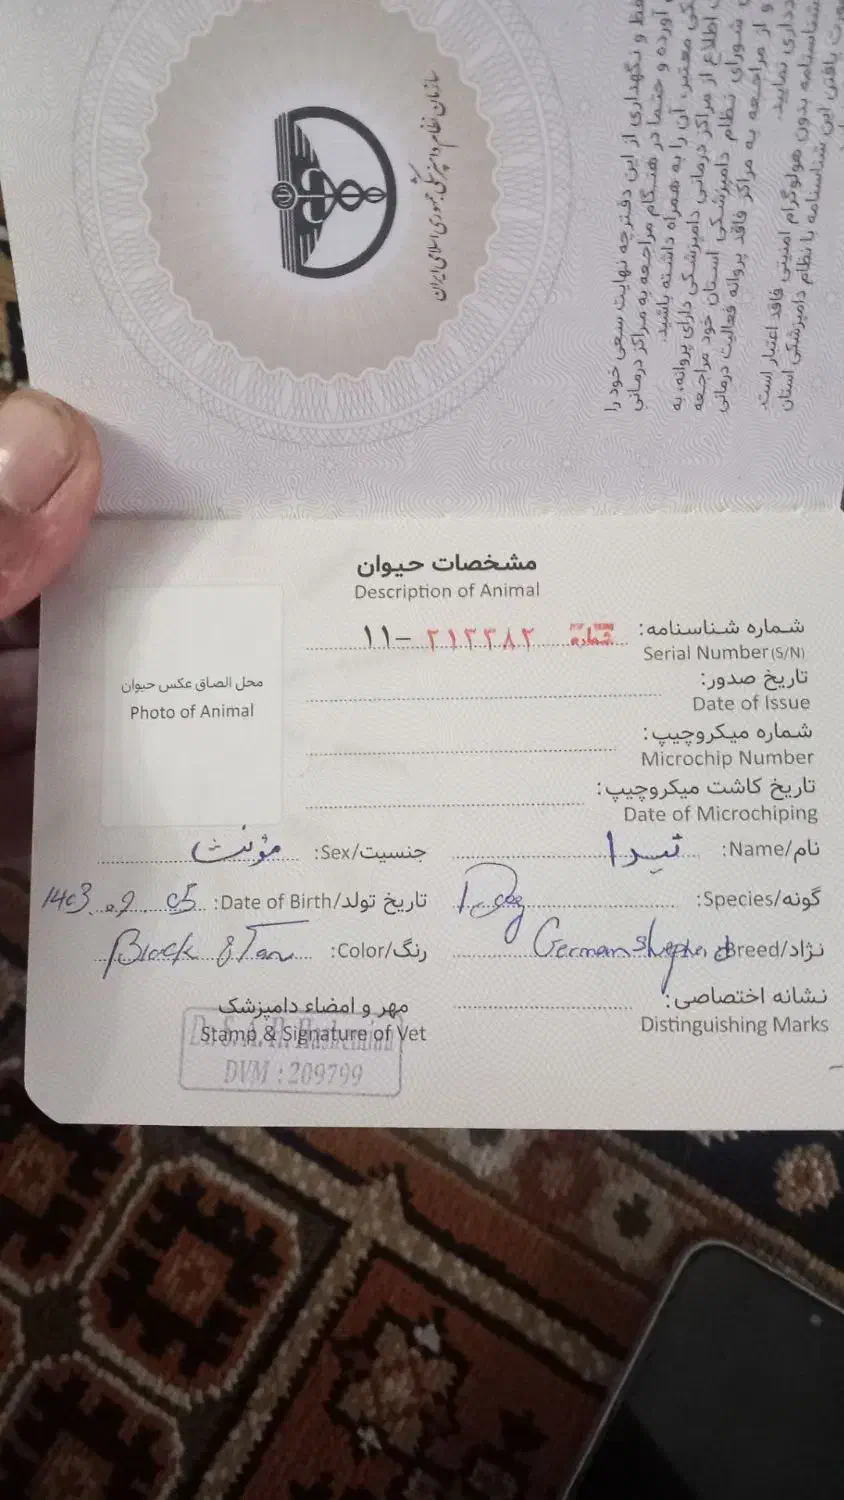 سازمان نظام دامپزشکی جمهوری اسلامی ایران
فظ و نگهداری از این دفترچه نهایت سعی خود را
آورده و حتما در هنگام مراجعه به مراکز درمانی
کی معتبر، آن را به همراه داشته باشید.
اطلاع از مراکز درمانی دامپزشکی دارای پروانه، به
شورای نظام دامپزشکی استان خود مراجعه
و از مراجعه به مراکز فاقد پروانه فعالیت درمانی
دداری نمایید.
شناسنامه بدون هولوگرام امنیتی فاقد اعتبار است.
یافتن این شناسنامه با نظام دامپزشکی استان
مشخصات حیوان
Description of Animal
شماره شناسنامه: شماره ۲۱۳۳۸۲ –۱۱
Serial Number(S/N)
تاریخ صدور:
Date of Issue
شماره میکروچیپ:
Microchip Number
تاریخ کاشت میکروچیپ:
Date of Microchiping
محل الصاق عکس حیوان
Photo of Animal
نام/Name: تیدا
جنسیت/Sex: مؤنث
گونه/Species: Dog
تاریخ تولد/Date of Birth: 1403.09.05
نژاد/Breed: German shepherd
رنگ/Color: Black & Tan
نشانه اختصاصی:
Distinguishing Marks
مهر و امضاء دامپزشک
Stamp & Signature of Vet
DVM : 209799